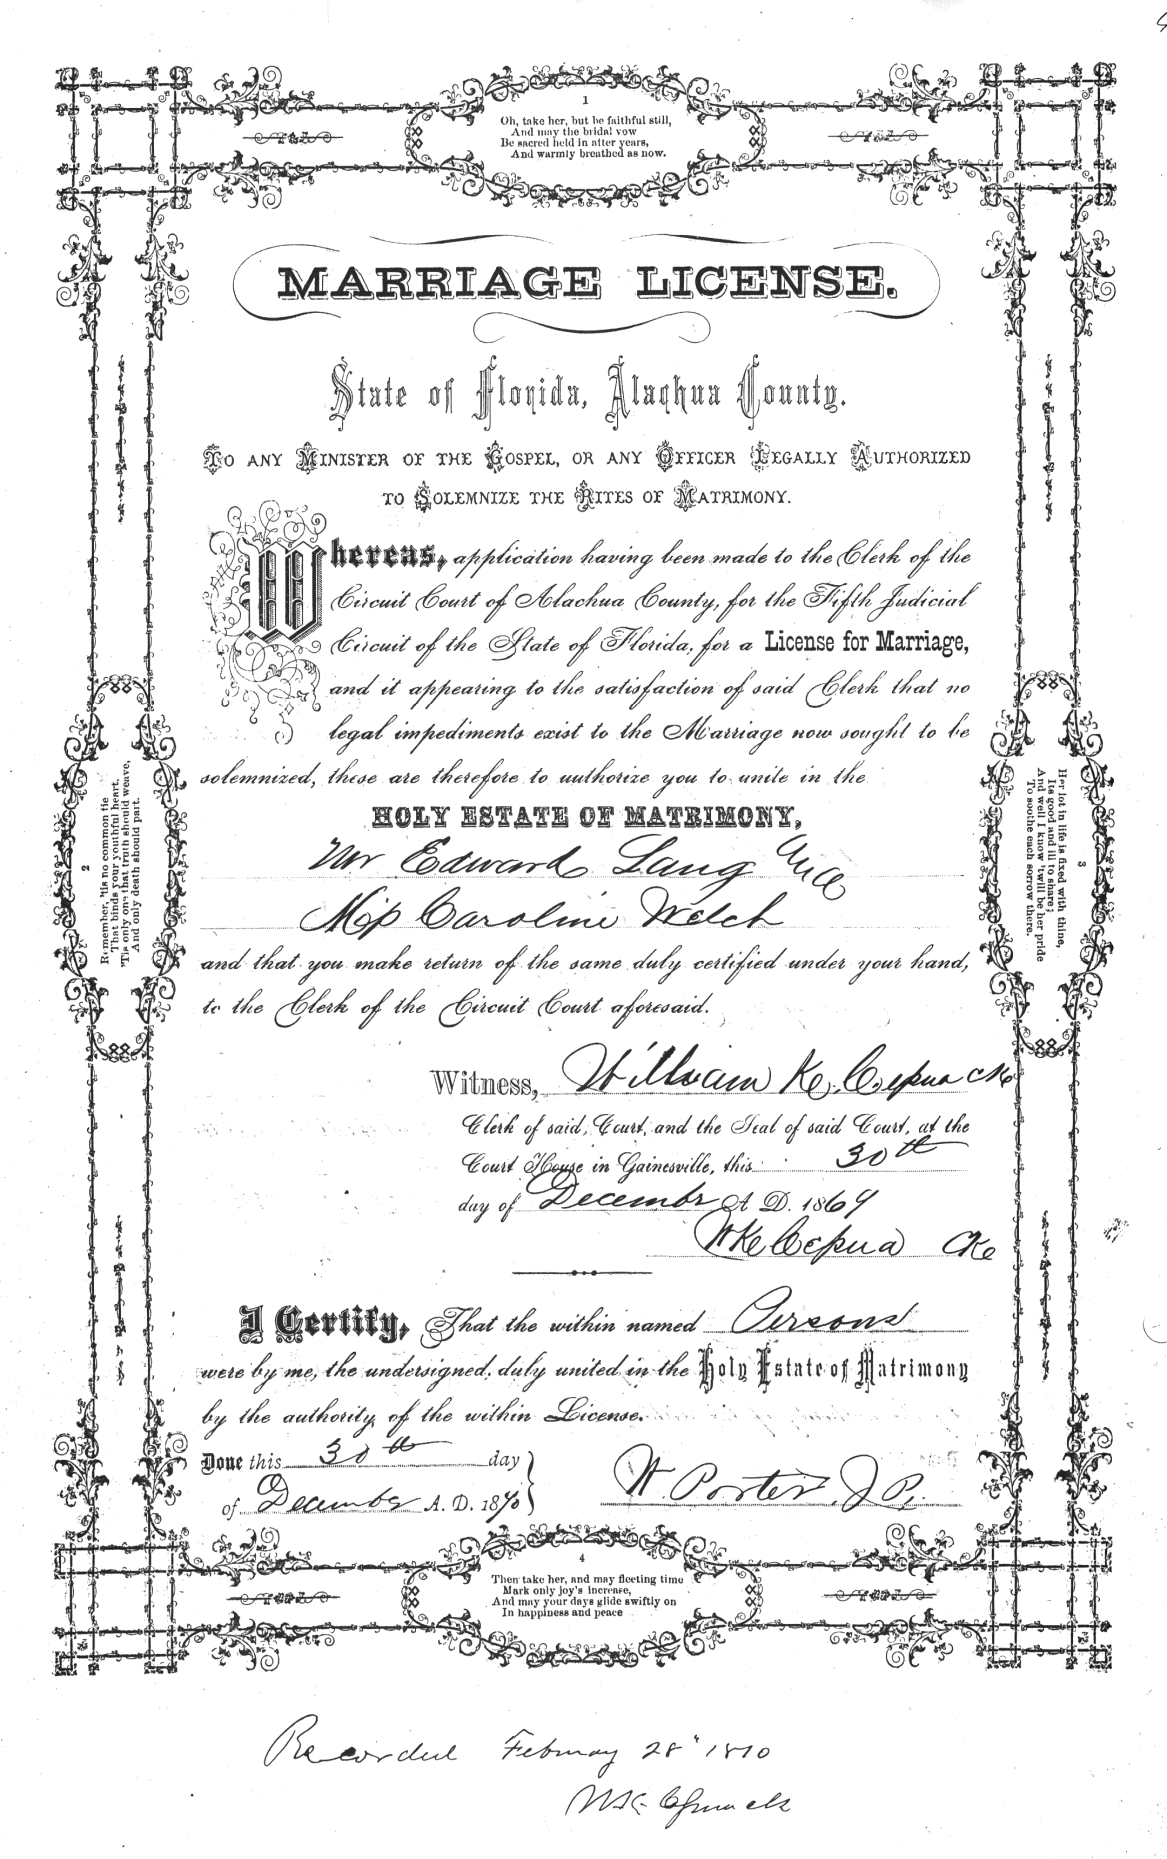 1
Oh, take her, but be faithful still,
And may the bridal vow
Be sacred held in after years,
And warmly breathed as now.
MARRIAGE LICENSE.
State of Florida, Alachua County.
TO ANY MINISTER OF THE GOSPEL, OR ANY OFFICER LEGALLY AUTHORIZED
TO SOLEMNIZE THE RITES OF MATRIMONY.
Whereas, application having been made to the Clerk of the
Circuit Court of Alachua County, for the Fifth Judicial
Circuit of the State of Florida, for a License for Marriage,
and it appearing to the satisfaction of said Clerk that no
legal impediments exist to the Marriage now sought to be
solemnized, these are therefore to authorize you to unite in the
HOLY ESTATE OF MATRIMONY,
Mr Edward Lang and
Miss Caroline Welch
and that you make return of the same duly certified under your hand,
to the Clerk of the Circuit Court aforesaid.
Witness, William K. Cessna Clk
Clerk of said, Court, and the Seal of said Court, at the
Court House in Gainesville, this 30th
day of December A D. 1869
WK Cessna Clk
I Certify, That the within named Persons
were by me, the undersigned, duly united in the Holy Estate of Matrimony
by the authority of the within License.
Done this 30th day
of December A. D. 1870
W. Porter J P.
2
Remember, 'tis no common tie
That binds your youthful heart,
'Tis only one that truth should weave,
And only death should part.
3
Her lot in life is fixed with thine,
Its good and ill to share;
And well I know 'twill be her pride
To soothe each sorrow there.
4
Then take her, and may fleeting time
Mark only joy's increase,
And may your days glide swiftly on
In happiness and peace
Recorded February 28" 1870